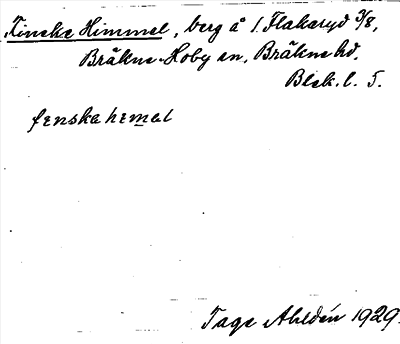 Finske Himmel, berg å 1. Flakaryd 3/8,
Bräkne-Hoby sn, Bräkne hd,
Blek. l. 5.
fenska hemal
Tage Ahldén 1929.